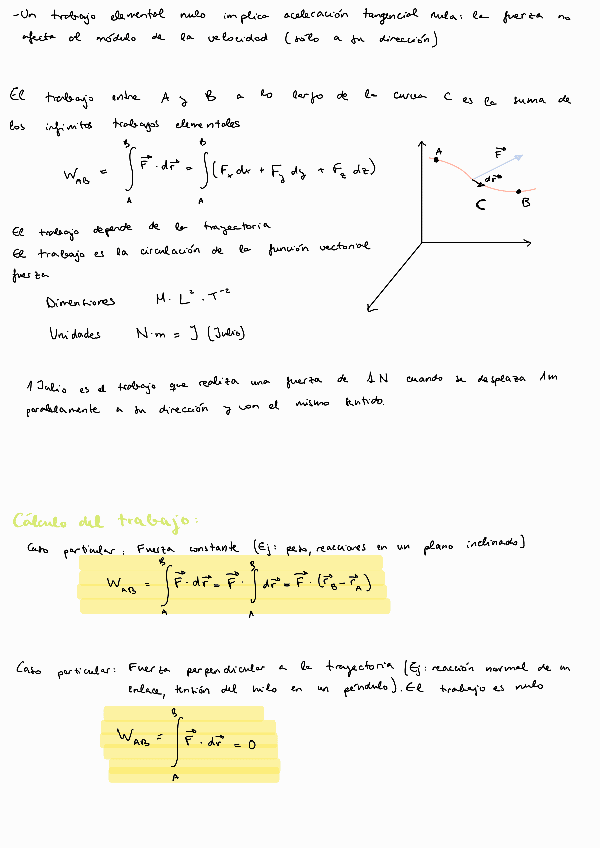 -Un trabajo elemental nulo implica aceleración tangencial nula: la fuerza no
afecta al módulo de la velocidad (sólo a su dirección)
El trabajo entre A y B a lo largo de la curva C es la suma de
los infinitos trabajos elementales
W_AB = ∫_A^B F⃗ · dr⃗ = ∫_A^B (F_x dx + F_y dy + F_z dz)
A
F⃗
dr⃗
C
B
El trabajo depende de la trayectoria
El trabajo es la circulación de la función vectorial
fuerza
Dimensiones M · L² · T⁻²
Unidades N·m = J (Julio)
1 Julio es el trabajo que realiza una fuerza de 1N cuando se desplaza 1m
paralelamente a su dirección y con el mismo sentido.
Cálculo del trabajo:
Caso particular: Fuerza constante (Ej: peso, reacciones en un plano inclinado)
W_AB = ∫_A^B F⃗ · dr⃗ = F⃗ · ∫_A^B dr⃗ = F⃗ · (r⃗_B - r⃗_A)
Caso particular: Fuerza perpendicular a la trayectoria (Ej: reacción normal de un
enlace, tensión del hilo en un péndulo). El trabajo es nulo
W_AB = ∫_A^B F⃗ · dr⃗ = 0